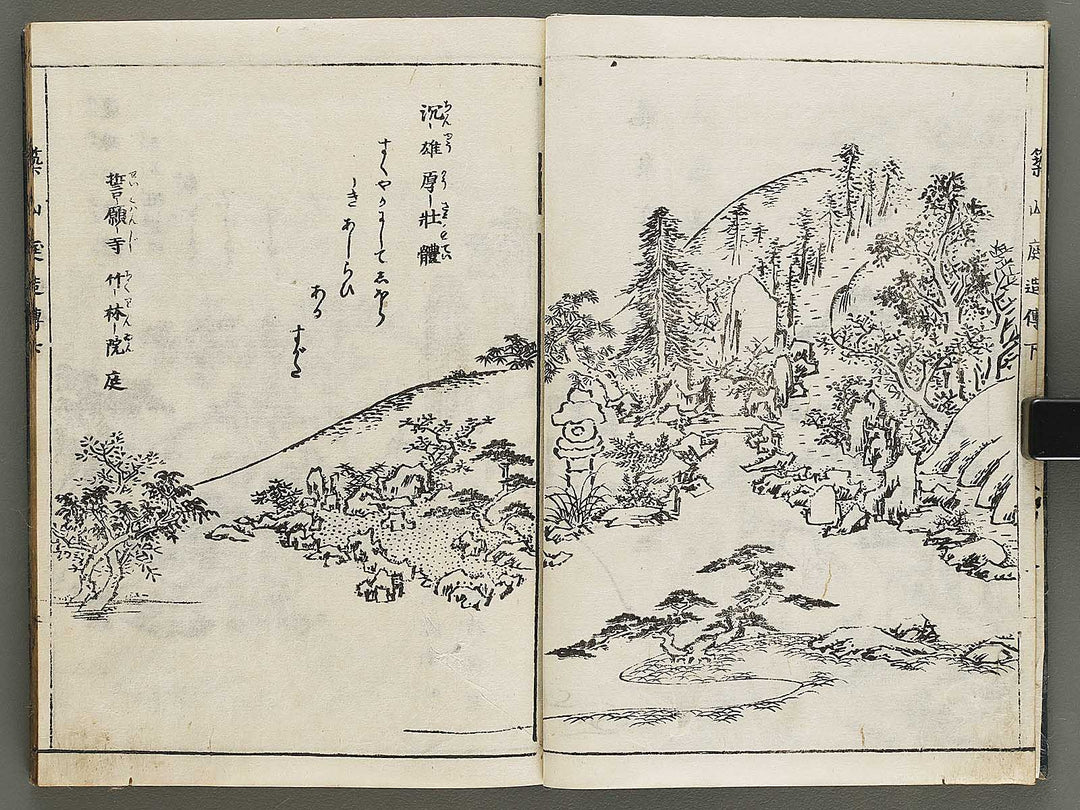 築山庭造傳下
沉雄厚壯體
すくやかにしてしほら
しきあしらひ
ある
すがた
誓願寺竹林院庭
築山庭造傳